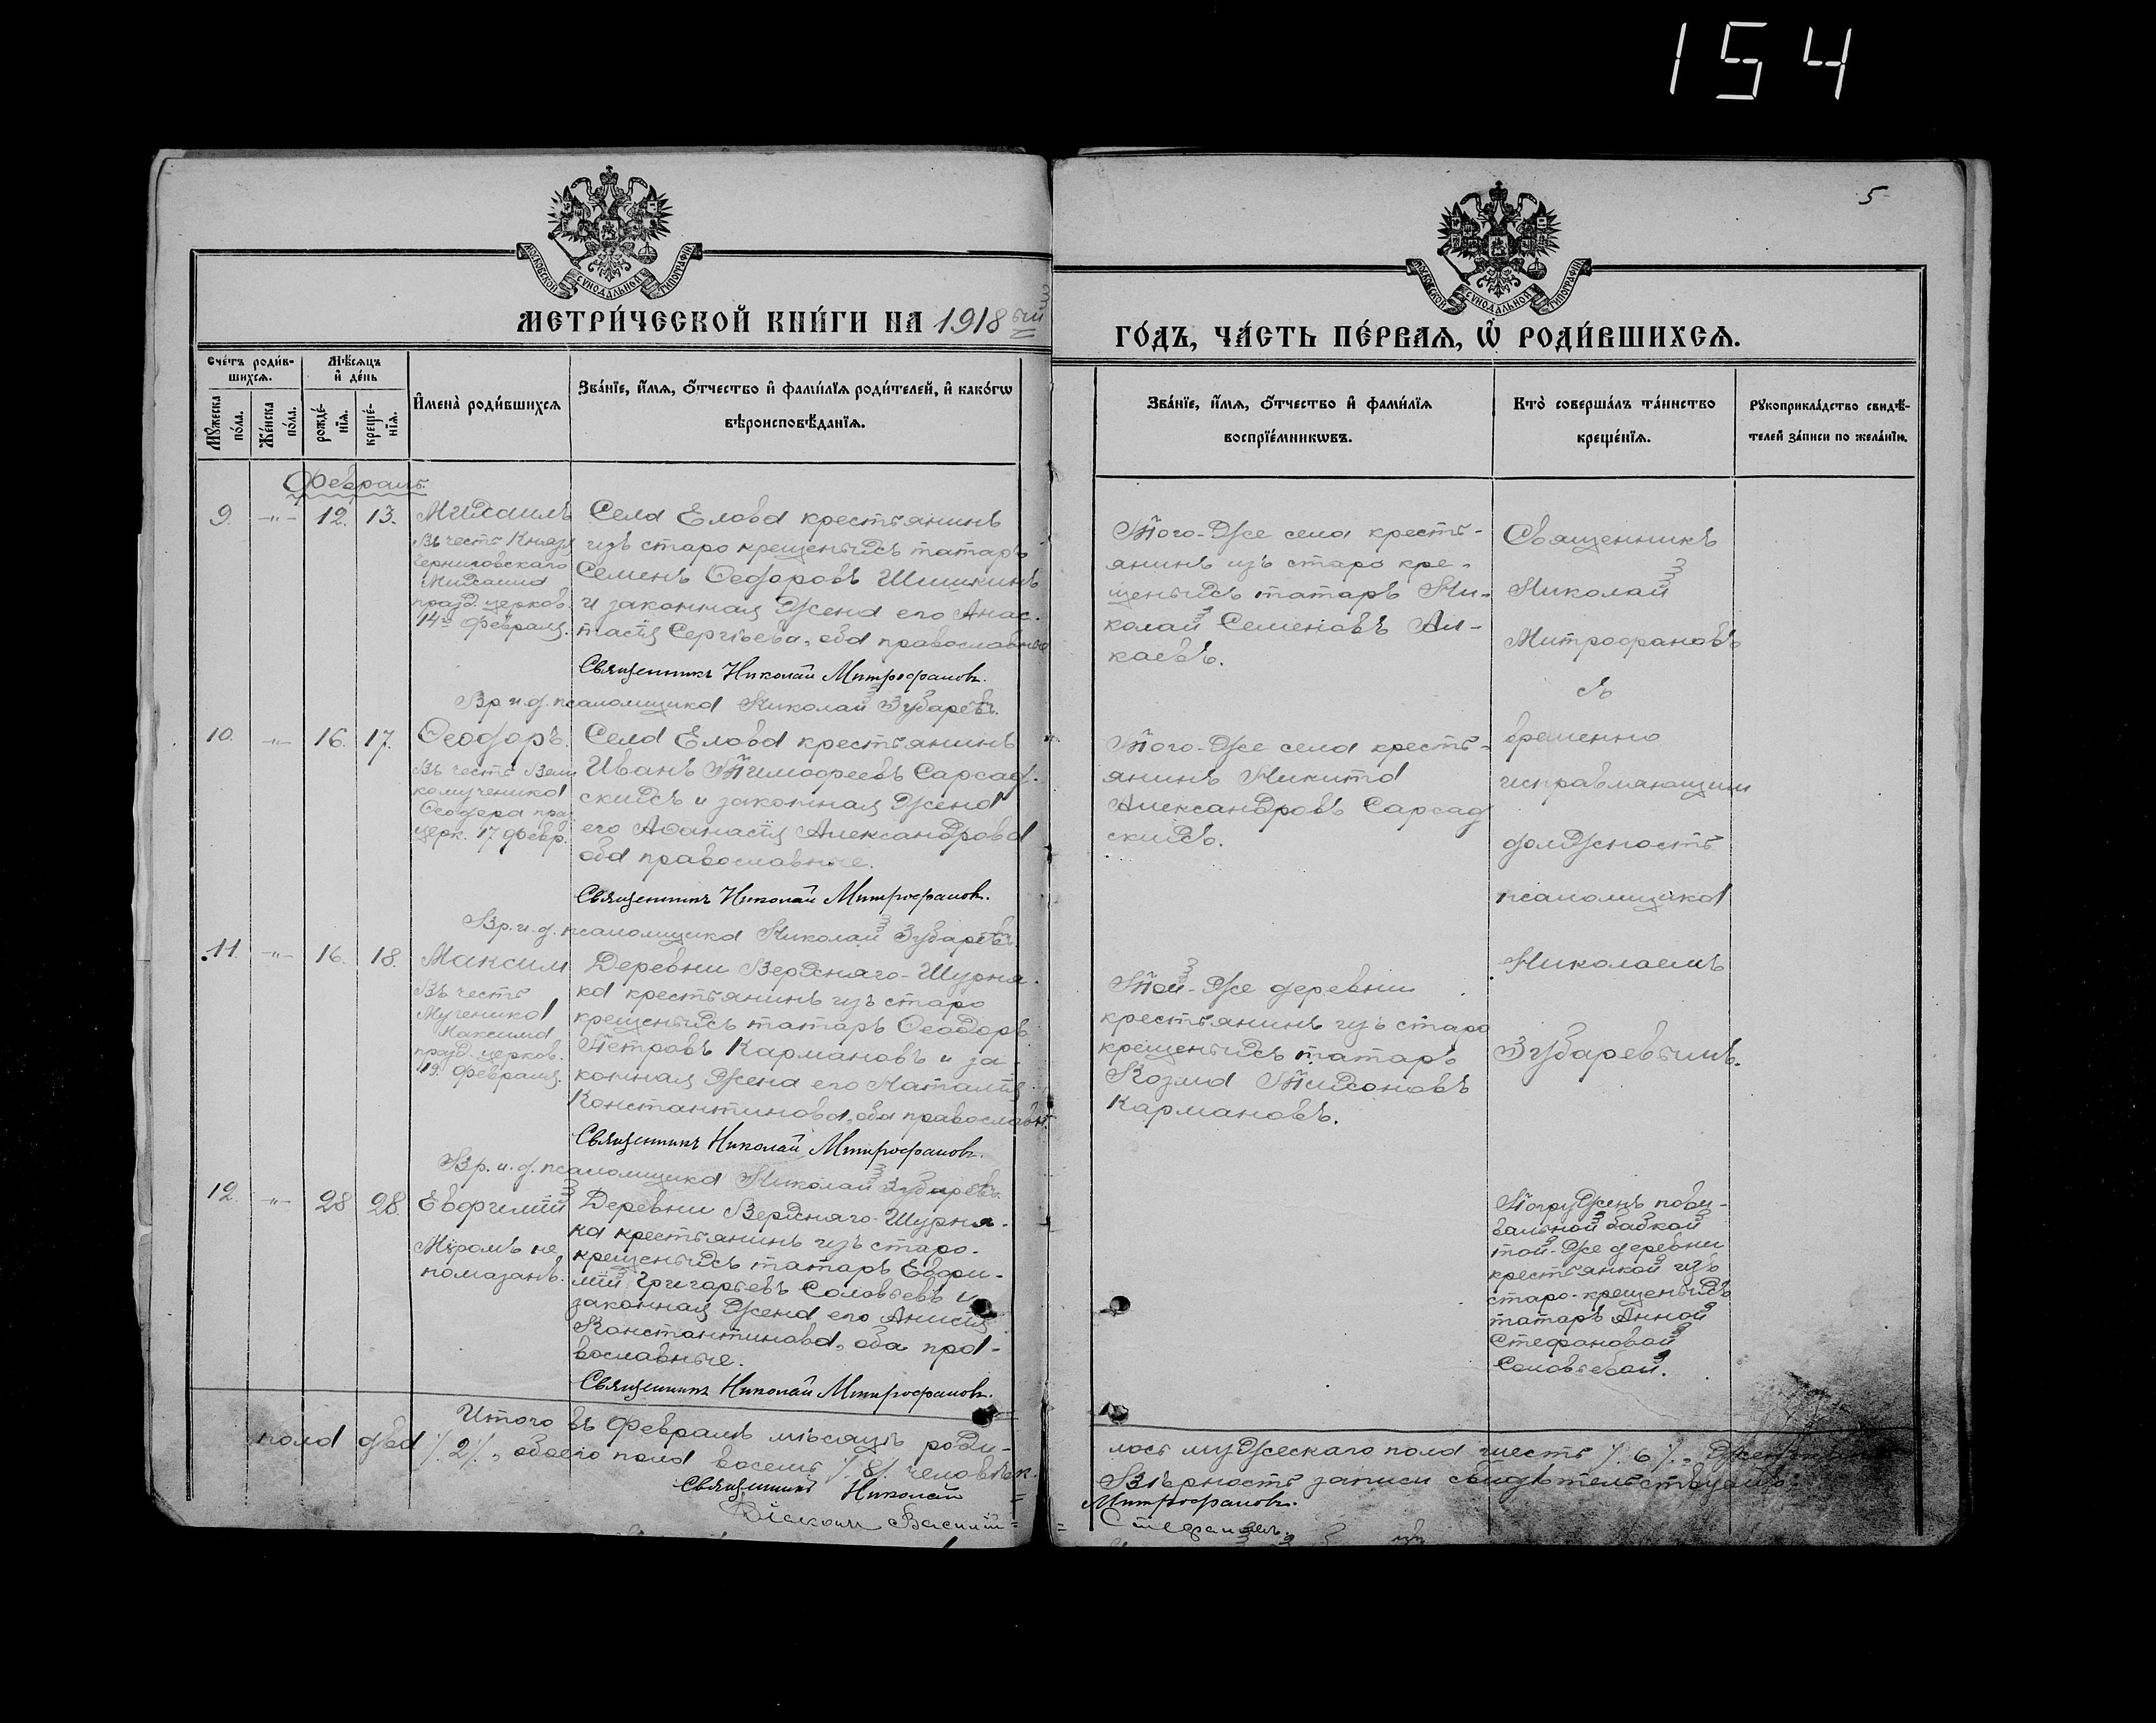 154
5
МОСКОВСКОЙ СѴНОДАЛЬНОЙ ТИПОГРАФІИ
МОСКОВСКОЙ СѴНОДАЛЬНОЙ ТИПОГРАФІИ
МЕТРИ́ЧЕСКОЙ КНИ́ГИ НА 1918ый
ГО́ДЪ, ЧА́СТЬ ПЕ́РВАѦ, Ѡ҆ РОДИ́ВШИХСѦ.
Сче́тъ роди́в-
шихсѧ.
Мѣ́сѧцъ
и҆ де́нь
Мꙋ́жеска
по́ла.
Же́нска
по́ла.
рожде́-
нїѧ.
креще́-
нїѧ.
И҆мена̀ роди́вшихсѧ
Зва́нїе, и҆́мѧ, ѻ҆́тчество и҆ фами́лїѧ роди́телей, и҆ како́гѡ
вѣроисповѣ́данїѧ.
Зва́нїе, и҆́мѧ, ѻ҆́тчество и҆ фами́лїѧ
воспрїе́мникѡвъ.
Кто̀ соверша́лъ та́инство
креще́нїѧ.
Рꙋкоприкла́дство свидѣ́-
телей за́писи по жела́нїю.
Февраль.
9. -"- 12. 13.
Михаилъ
Въ честь Князя
Черниговскаго
Михаила
празд. церков.
14го февраля.
Села Елова крестьянинъ
изъ старо крещеныхъ татаръ
Семенъ Ѳеодоровъ Шишкинъ
и законная жена его Анас-
тасія Сергѣева, оба православные
Священникъ Николай Митрофановъ.
Вр. и. д. псаломщика Николай Зубаревъ.
Того-же села кресть-
янинъ изъ старо кре-
щеныхъ татаръ Ни-
колай Семеновъ Ал-
каевъ.
Священникъ
Николай
Митрофановъ
съ
временно
исправляющим
должность
псаломщика
Николаемъ
Зубаревымъ.
10. -"- 16. 17.
Ѳеодоръ.
Въ честь Вели
комученика
Ѳеодора праз
церк. 17 февр.
Села Елова крестьянинъ
Иванъ Тимофеевъ Сарсад-
скихъ и законная жена
его Аѳанасія Александрова
оба православные.
Священникъ Николай Митрофановъ.
Вр. и. д. псаломщика Николай Зубаревъ
Того-же села кресть-
янинъ Никита
Александровъ Сарсад
скихъ.
11. -"- 16. 18.
Максим
Въ честь
Мученика
Максима
празд. церков.
19. февраля.
Деревни Верхняго-Шурня-
ка крестьянинъ изъ старо
крещеныхъ татаръ Ѳеодоръ
Петровъ Кармановъ и за-
конная жена его Наталія
Константинова, оба православн.
Священникъ Николай Митрофановъ.
Вр. и. д. псаломщика Николай Зубаревъ.
Той-же деревни
крестьянинъ изъ старо
крещеныхъ татаръ
Козма Тихоновъ
Кармановъ.
12. -"- 28 28.
Евфимій
Мѵромъ не
помазанъ.
Деревни Верхняго-Шурня-
ка крестьянинъ изъ старо-
крещеныхъ татаръ Евфи-
мій Григорьевъ Соловьевъ и
законная жена его Анисія
Константинова, оба пра-
вославные.
Священникъ Николай Митрофановъ.
Погруженъ пови-
вальной бабкой
той-же деревни
крестьянкой изъ
старо-крещеныхъ
татаръ Анной
Стефановой
Соловьевой.
Итого въ Февралѣ мѣсяцѣ роди-
лось мужескаго пола шесть /. 6 /. женскаго
пола два /. 2 /. обоего пола восемь /. 8 /. человѣк.
Вѣрность записи свидѣтельствуемъ:
Священникъ Николай
Митрофановъ.
Діаконъ Василій
Стефановъ.